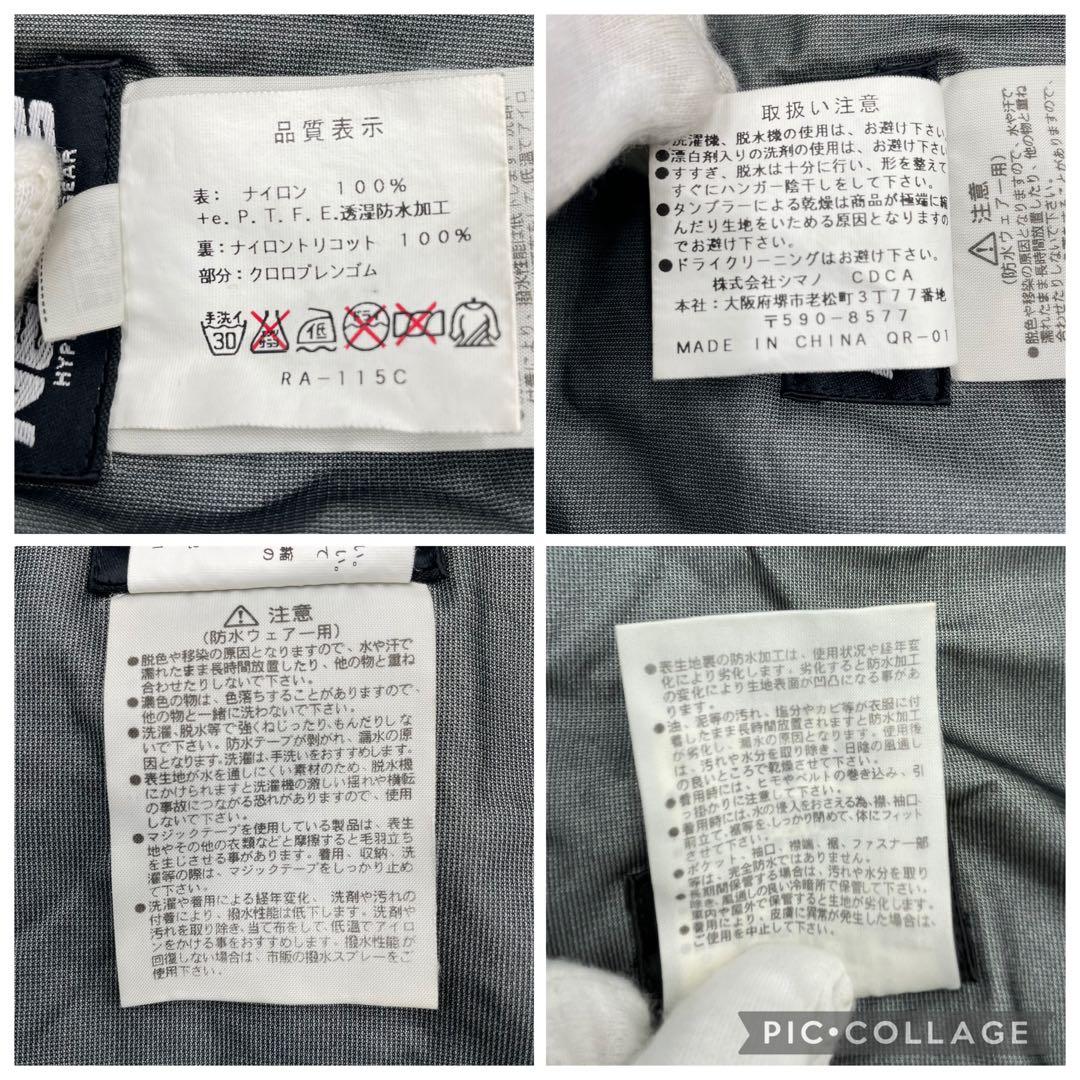 品質表示
表: ナイロン 100%
+e.P.T.F.E.透湿防水加工
裏:ナイロントリコット 100%
部分:クロロプレンゴム
手洗イ
30
エンソ
サラシ
低
ドライ
RA-115C
GEAR
HYP
取扱い注意
洗濯機、脱水機の使用は、お避け下さい。
●漂白剤入りの洗剤の使用は、お避け下さい
●すすぎ、脱水は十分に行い、形を整えて
すぐにハンガー陰干しをして下さい。
●タンブラーによる乾燥は商品が極端に縮
んだり生地をいためる原因となりますの
でお避け下さい。
●ドライクリーニングはお避け下さい。
株式会社シマノ CDCA
本社:大阪府堺市老松町3丁77番地
〒590-8577
MADE IN CHINA QR-01
注意
(防水ウェアー用)
●脱色や移染の原因となりますので、水や汗で
濡れたまま長時間放置したり、他の物と重ね
合わせたりしないで下さい。
注意
(防水ウェアー用)
●脱色や移染の原因となりますので、水や汗で
濡れたまま長時間放置したり、他の物と重ね
合わせたりしないで下さい。
●濃色の物は、色落ちすることがありますので、
他の物と一緒に洗わないで下さい。
●洗濯、脱水等で強くねじったり、もんだりしな
いで下さい。防水テープが剥がれ、漏水の原
因となります。洗濯は、手洗いをおすすめします。
●表生地が水を通しにくい素材のため、脱水機
にかけられますと洗濯機の激しい揺れや横転
の事故につながる恐れがありますので、使用
しないで下さい。
●マジックテープを使用している製品は、表生
地やその他の衣類などと摩擦すると毛羽立ち
を生じさせる事があります。着用、収納、洗
濯等の際は、マジックテープをしっかり止め
て下さい。
●洗濯や着用による経年変化、洗剤や汚れの
付着により、撥水性能は低下します。洗剤や
汚れを取り除き、当て布をして、低温でアイロ
ンをかける事をおすすめします。撥水性能が
回復しない場合は、市販の撥水スプレーをご
使用下さい。
●表生地裏の防水加工は、使用状況や経年変
化により劣化します。劣化すると防水加工
の変化により生地表面が凹凸になる事があ
ります。
●油、泥等の汚れ、塩分やカビ等が衣服に付
着したまま長時間放置されますと防水加工
が劣化し、漏水の原因となります。使用後
は、汚れや水分を取り除き、日陰の風通し
の良いところで乾燥させて下さい。
●着用時には、ヒモやベルトの巻き込み、引
っ掛かりに注意して下さい。
●着用時には、水の侵入をおさえる為、襟、袖口、
前立て、裾等を、しっかり閉めて、体にフィット
させて下さい。
●ポケット、袖口、襟端、裾、ファスナー部
等は、完全防水ではありません。
●長期間保管する場合は、汚れや水分を取り
除き、風通しの良い冷暗所で保管して下さい。
車内や屋外で保管すると生地が劣化します。
●着用により、皮膚に異常が発生した場合は、
ご使用を中止して下さい。
PIC•COLLAGE